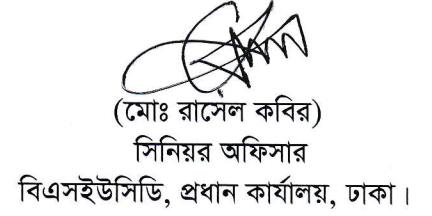 (মোঃ রাসেল কবির)
সিনিয়র অফিসার
বিএসইউসিডি, প্রধান কার্যালয়, ঢাকা।